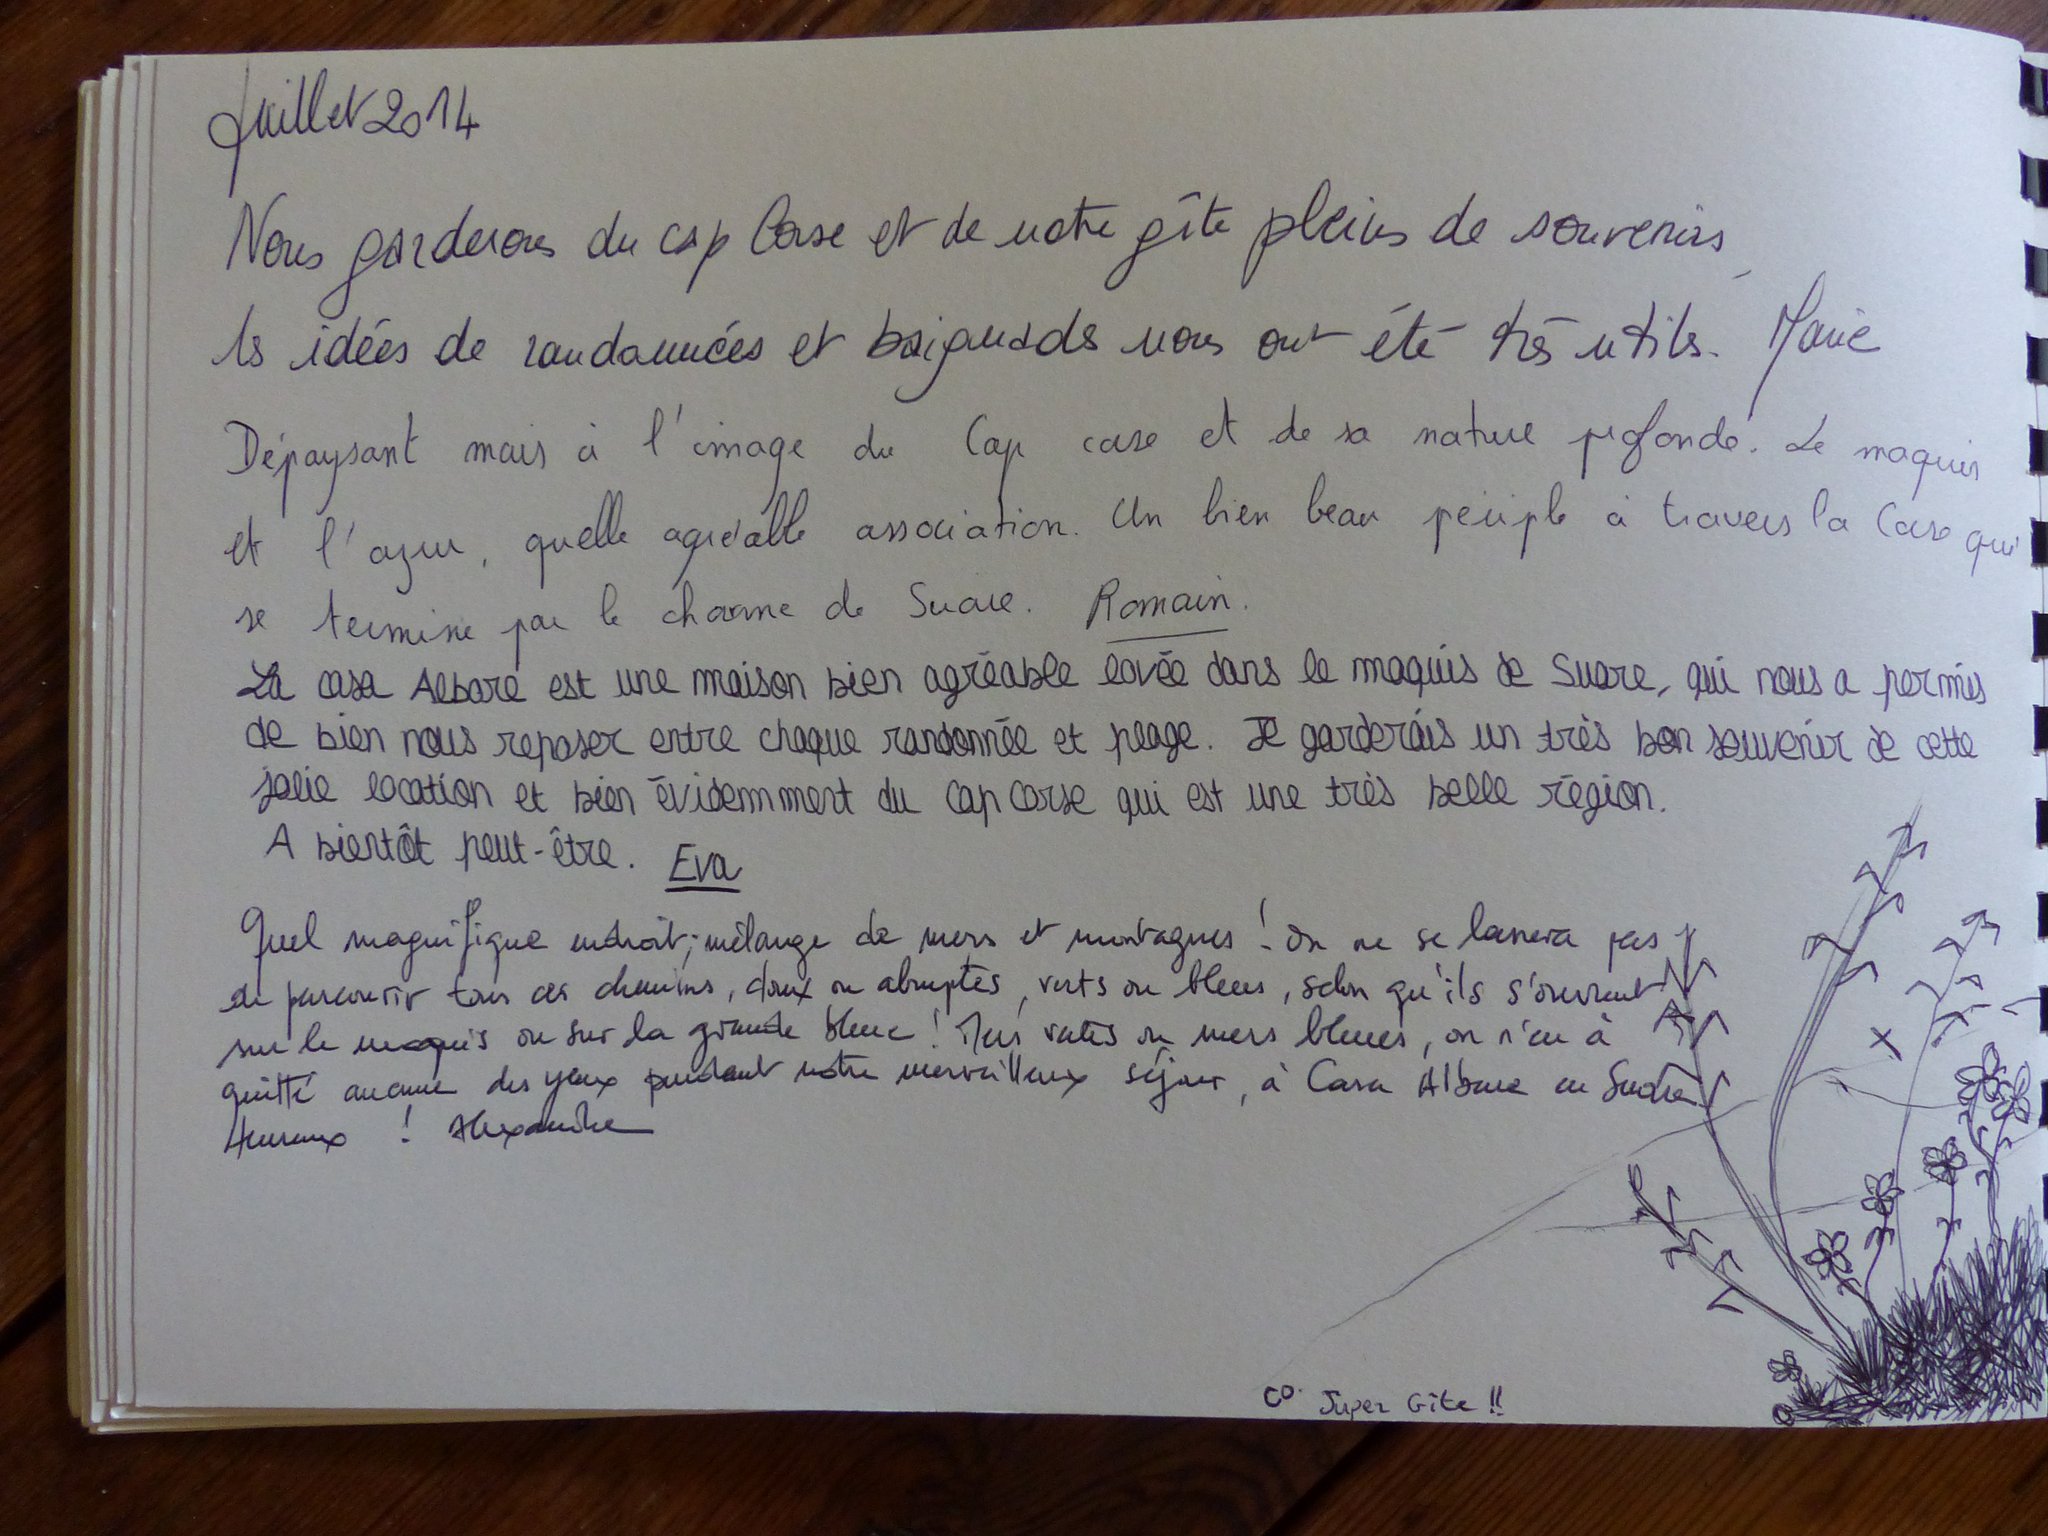 Juillet 2014
Nous garderons du cap Corse et de notre gîte pleins de souvenirs,
les idées de randonnées et baignades nous ont été très utiles. Marie
Dépaysant mais à l'image du Cap corse et de sa nature profonde. Le maquis
et l'azur, quelle agréable association. Un bien beau périple à travers la Corse qui
se termine par le charme de Suare. Romain.
La casa Albore est une maison bien agréable lovée dans le maquis de Suare, qui nous a permis
de bien nous reposer entre chaque randonnée et plage. Je garderais un très bon souvenir de cette
jolie location et bien évidemment du Cap Corse qui est une très belle région.
A bientôt peut-être. Eva
Quel magnifique endroit; mélange de mers et montagnes ! On ne se lassera pas
de parcourir tous ces chemins, doux ou abruptes, verts ou bleus, selon qu'ils s'ouvrent
sur le maquis ou sur la grande bleue ! Mers vertes ou mers bleues, on n'en à
quitté aucune des yeux pendant notre merveilleux séjour, à Casa Albore en Suare
Heureux ! Alexandre
CO. Super Gîte !!